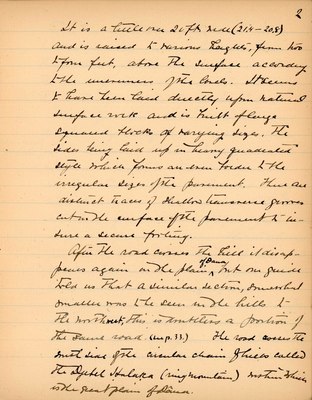 2
It is a little over 20 ft. wide (21.4 – 20.8)
and is raised to various heights, from two
to four feet, above the surface according
to the unevenness of the land. It seems
to have been laid directly upon natural
surface rock and is built of large
squared blocks of varying sizes. The
sides being laid up in heavy quadrated
style which forms an even border to the
irregular sizes of the pavement. There are
distinct traces of shallow transverse grooves
cut in the surface of the pavement to in-
sure a secure footing.
After the road crosses the hill it disap-
pears again on the plain of Dana, but our guide
told us that a similar section, somewhat
smaller was to be seen in the hills to
the northwest, this is doubtless a portion of
the same road (in p. 33.) The road crosses the
south side of the circular chain of hills called
the Djebel Halaka (ring mountain) within which
is the great plain of Dana.